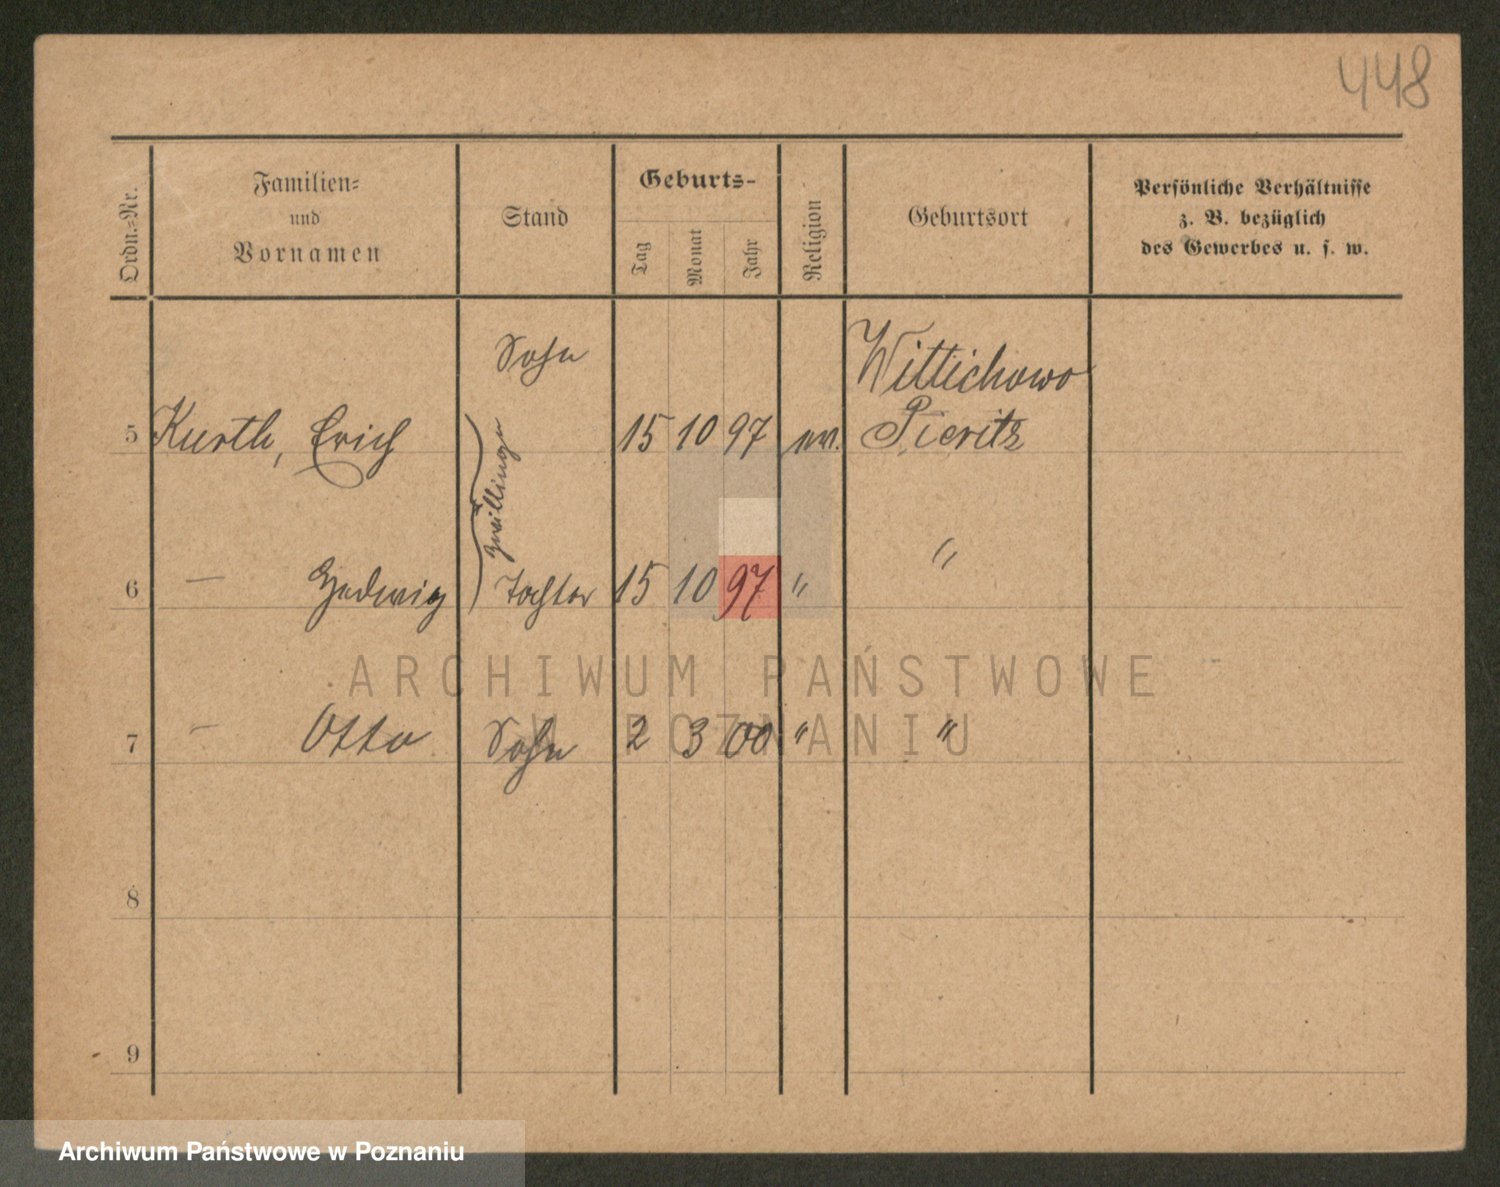 448
Ordn.-Nr.
Familien-
und
Vornamen
Stand
Geburts-
Tag
Monat
Jahr
Religion
Geburtsort
Persönliche Verhältnisse
z. B. bezüglich
des Gewerbes u. s. w.
Sohn
Wittichowo
5 Kurth, Erich 15 10 97 ev. Pieritz
Zwillinge
6 — Hedwig Tochter 15 10 97 " "
ARCHIWUM PAŃSTWOWE
W POZNANIU
7 — Otto Sohn 2 3 00 " "
8
9
Archiwum Państwowe w Poznaniu